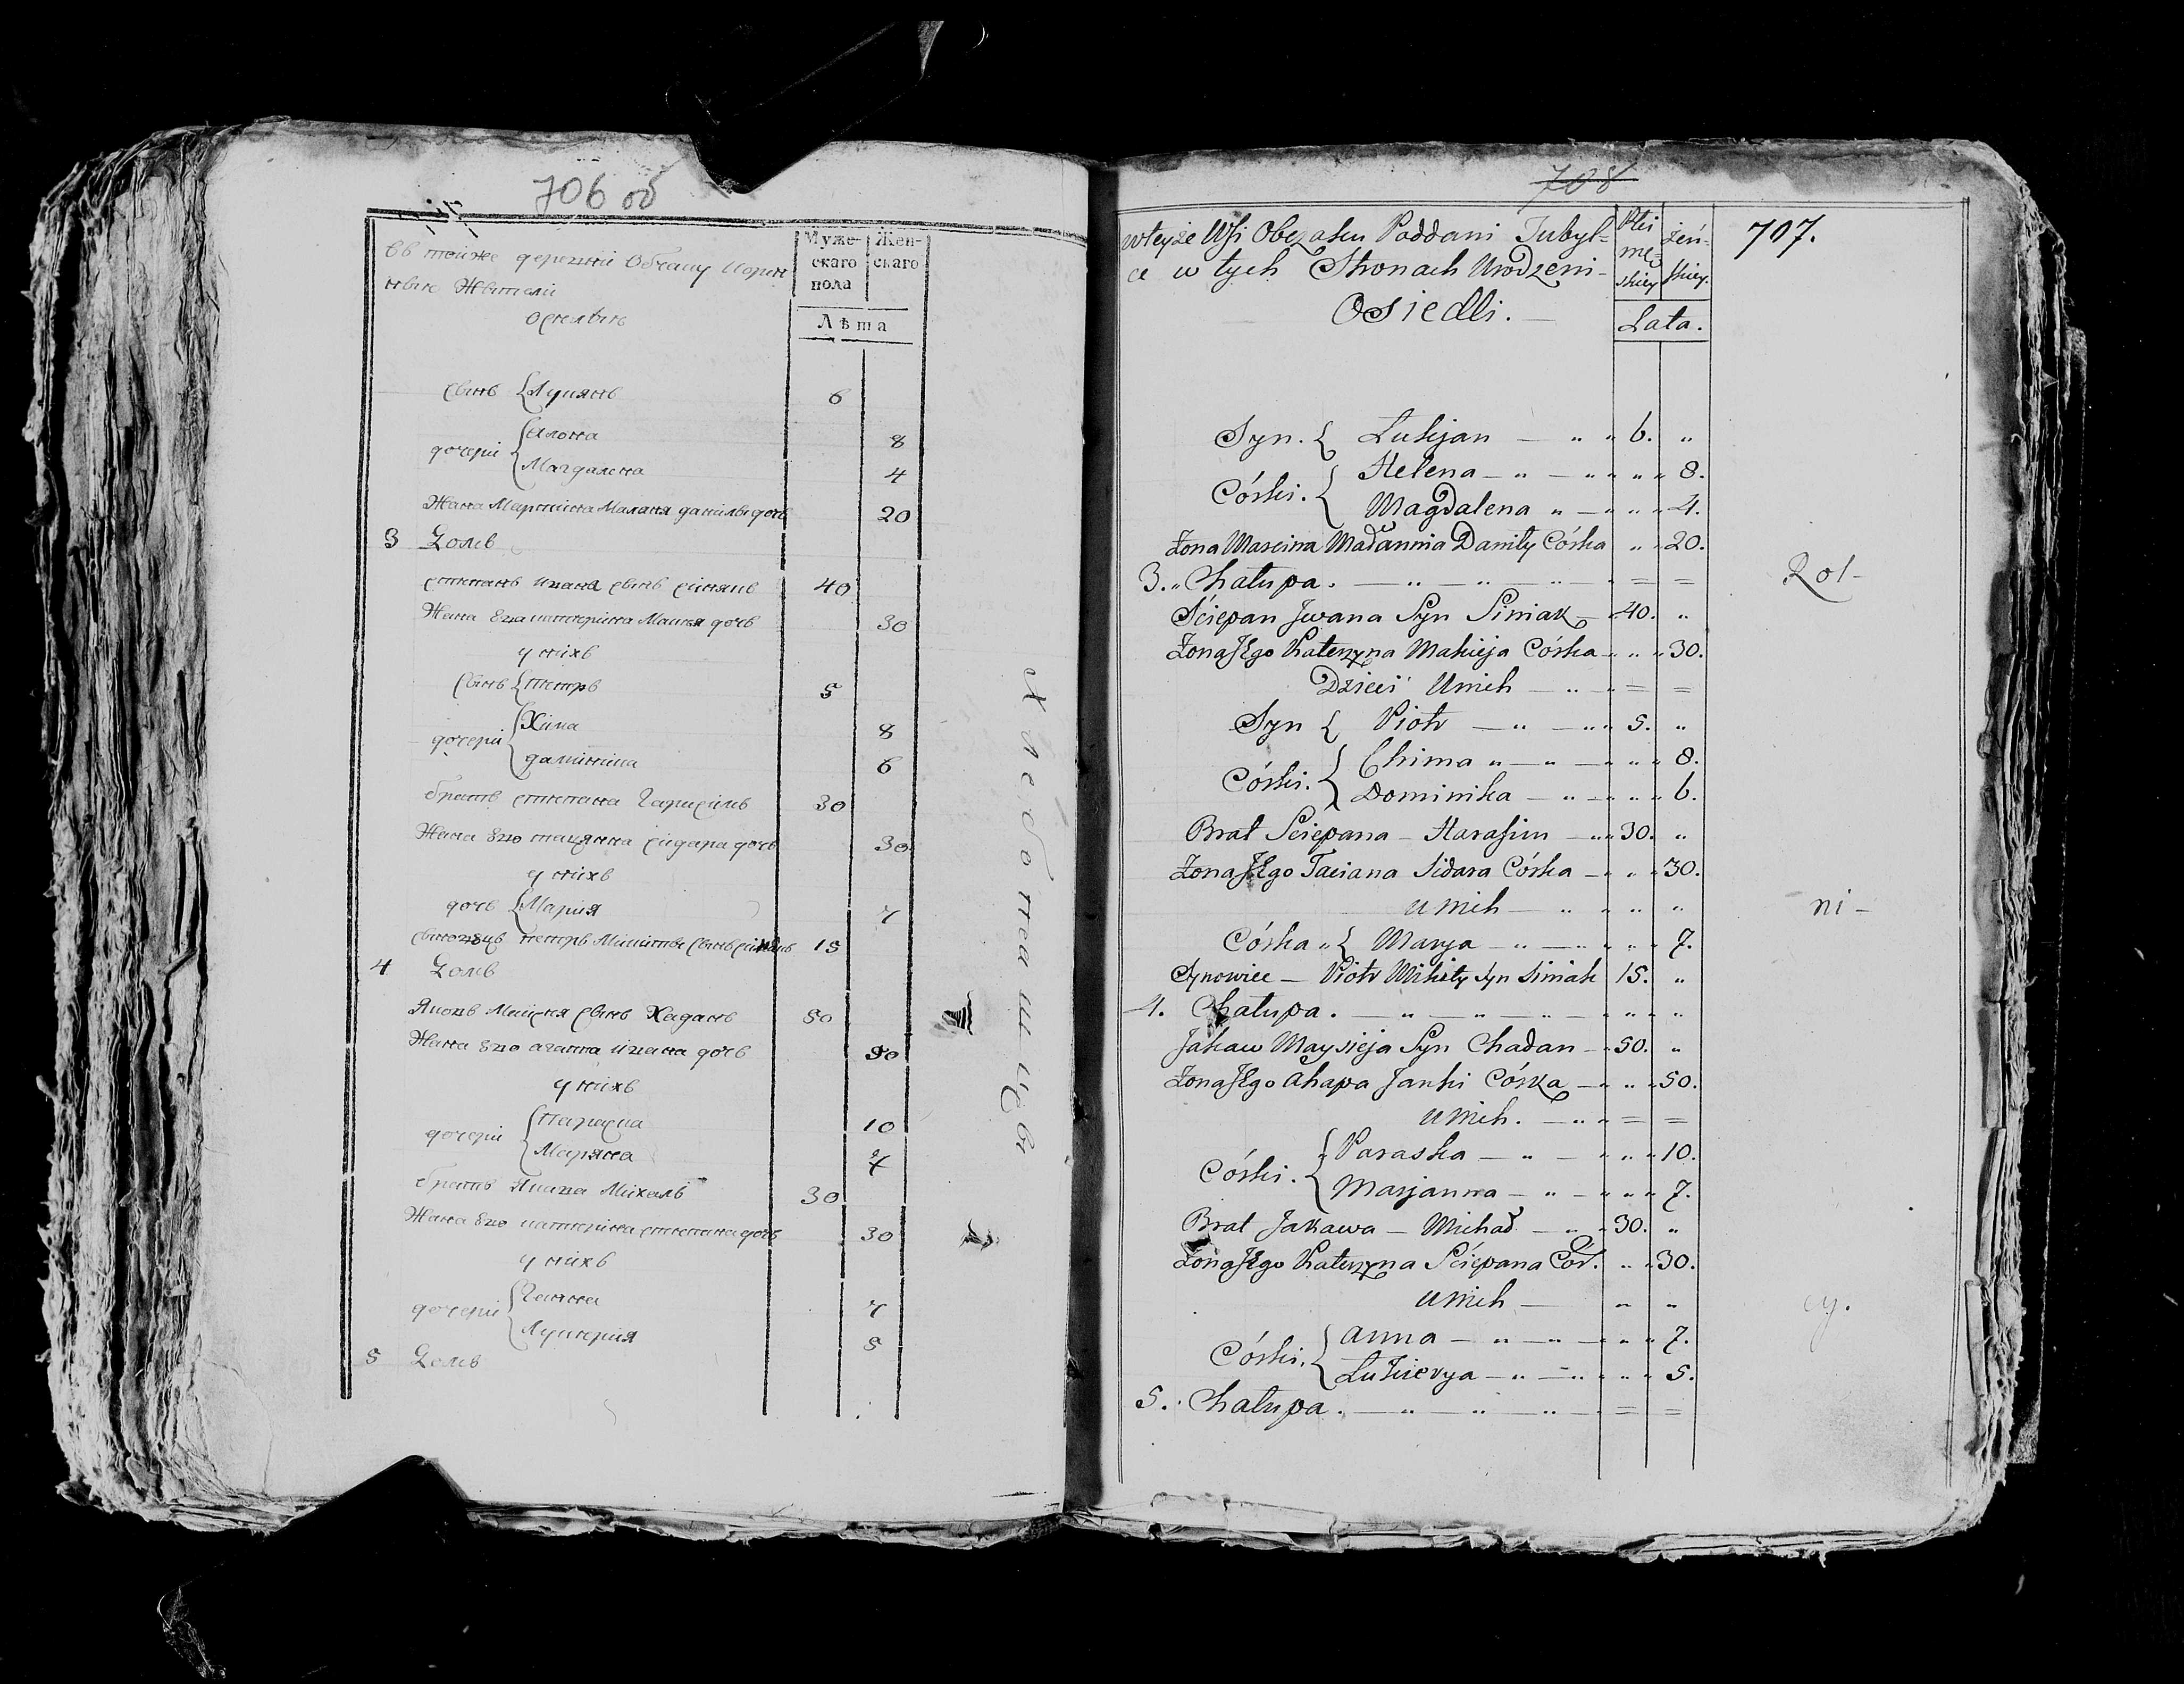 706 об
въ тойже деревни Обчаку Корин
ные Жители
оселые
Муже-
скаго
пола
Жен-
скаго
Лѣта
сынъ { Лукянъ 6
дочери { Алона 8
Магдалена 4
Жена Мартина Маланя данилы дочь 20
3 Домъ
степанъ ивана сынъ синякъ 40
Жена Его катерина Макея дочь 30
у нихъ
сынъ { петръ 5
дочери { Хима 8
даминика 6
братъ степана Гарасимъ 30
Жена Его тацянна сидара дочь 30
у нихъ
дочь { Мария 7
сыновецъ петръ Микиты сынъ синякъ 15
4 Домъ
Яковъ Мойсея сынъ Хаданъ 50
Жена Его агапа ивана дочь 50
у нихъ
дочери { параска 10
Маряна 7
братъ Якова Михалъ 30
Жена Его катерина степана дочь 30
у нихъ
дочери { Ганна 7
Лукерия 5
5 Домъ
Хлебопашцы
708
707.
w teyże Wsi Obczaku Poddani Tubyl=
ce w tych Stronach Urodzeni-
Osiedli. —
Płci
mę=
skiey
żeń-
skiey.
Lata.
Syn. { Lukjan — „ „ 6. „
Córki. { Helena — „ — „ „ „ „ 8.
Magdalena „ — „ „ „ 4.
Żona Marcina Małannia Daniły Córka „ „ 20.
3. „ Chałupa. — „ — „ — „ — „ = =
Ściepan Jwana Syn Siniak — „ 40. „
Żona Jego Katerzyna Makieja Córka „ „ „ 30.
Dzieci Unich — „ — „ = =
Syn { Piotr — „ — „ „ 5. „
Córki. { Chima „ — „ — „ „ „ 8.
Dominika — „ — „ „ „ 6.
Brat Ściepana — Harasim — „ „ 30. „
Żona Jego Taciana Sidara Córka — „ „ „ 30.
unich — „ „ „ „
Córka „ { Marya — „ — „ „ „ „ 7.
Synowiec — Piotr Mikity Syn Siniak 15. „
4. Chałupa. — „ — „ — „ — „ „ „
Jakaw Maysieja Syn Chadan — „ 50. „
Żona Jego Ahapa Janki Córka — „ „ „ 50.
unich. — „ „ = =
Córki. { Paraska — „ — „ „ „ 10.
Marjanna — „ — „ „ „ 7.
Brat Jakawa — Michał — „ „ 30. „
Żona Jego Katerzyna Ściepana Cór. „ „ 30.
unich — „ „
Córki. { Anna — „ — „ — „ „ „ 7.
Łukierya — „ — „ „ „ „ 5.
5. „ Chałupa. — „ — „ — „ — „ = =
Rol-
ni-
cy.